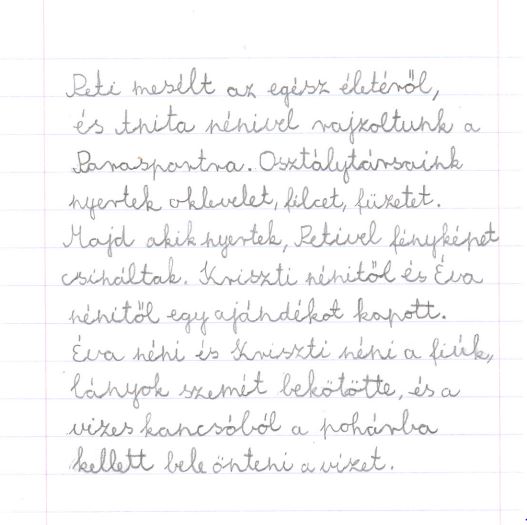 Peti mesélt az egész életéről,
és Anita nénivel rajzoltunk a
Parasportra. Osztálytársaink
nyertek oklevelet, filcet, füzetet.
Majd akik nyertek, Petivel fényképet
csináltak. Kriszti nénitől és Éva
nénitől egy ajándékot kapott.
Éva néni és Kriszti néni a fiúk,
lányok szemét bekötötte, és a
vizes kancsóból a pohárba
kellett bele önteni a vizet.